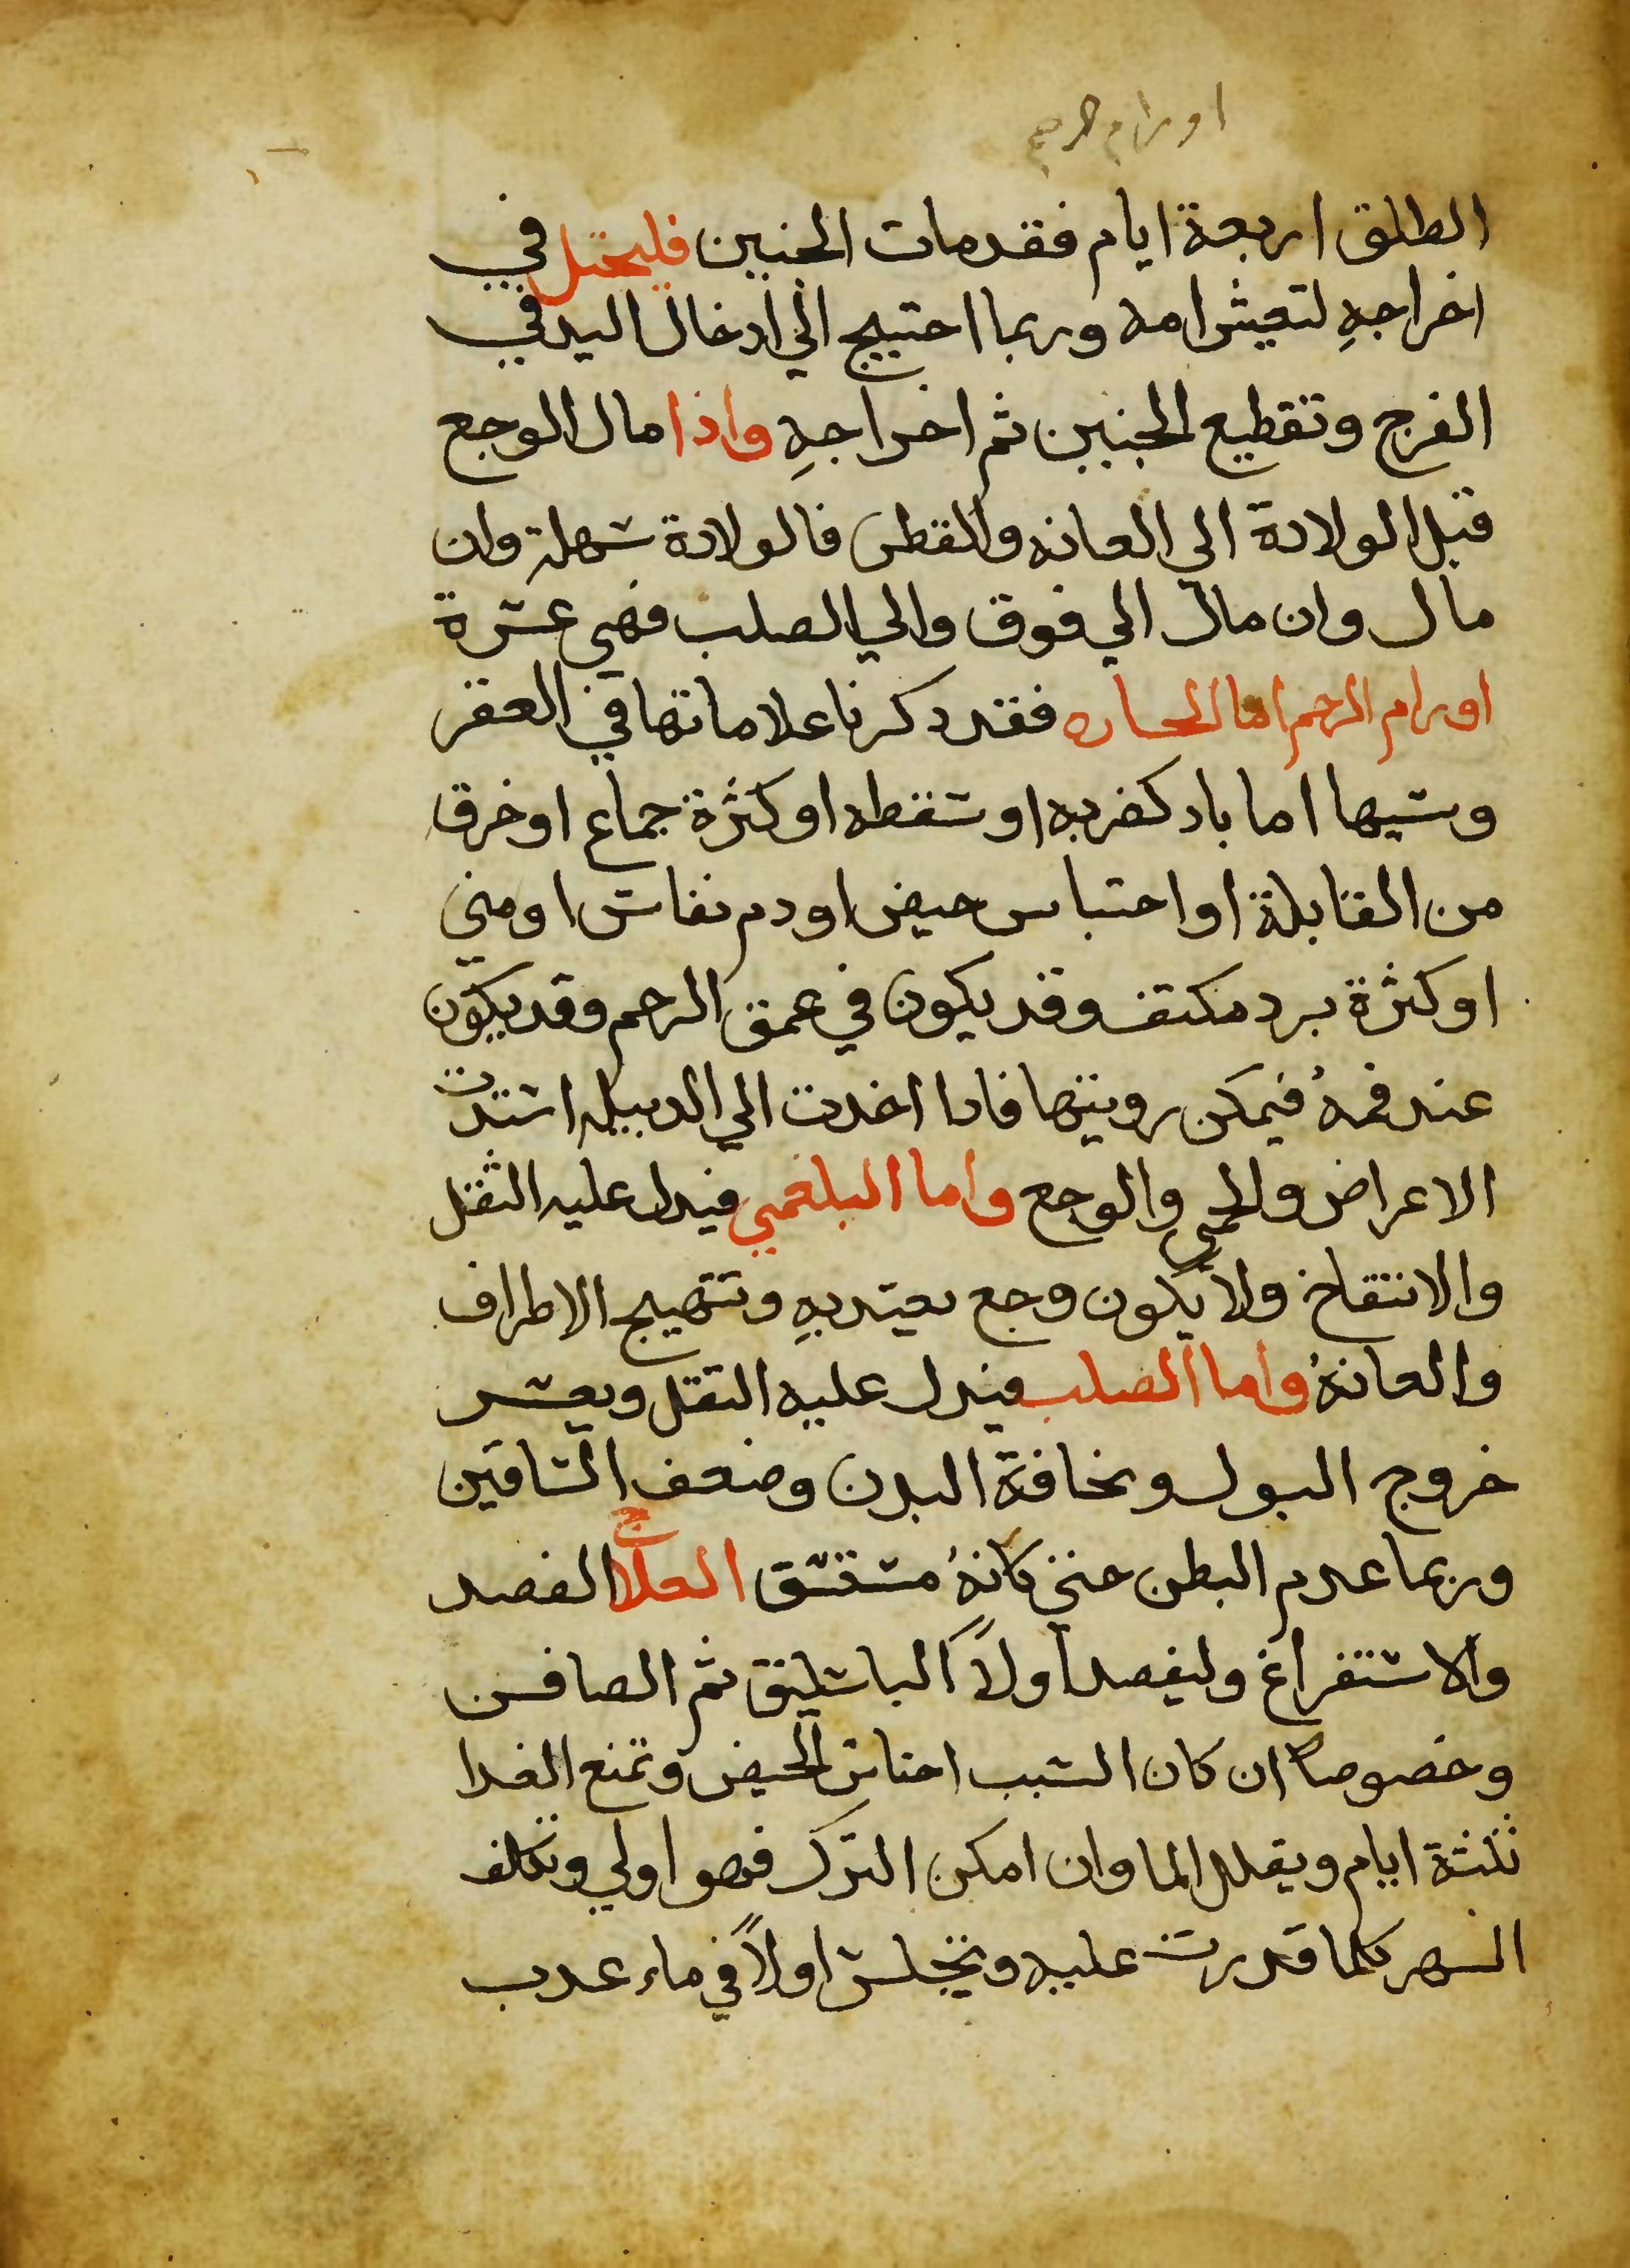 اورام الرحم
الطلق اربعة ايام فقد مات الجنين فليحتل في
اخراجهِ لتعيش امه وربما احتيج الي ادخال اليد في
الفرج وتقطيع الجنين ثم اخراجهِ واذا مال الوجع
قبل الولادة الي العانه والقطن فالولادة سهلة وان
مال وان مال الي فوق والي الصلب فهي عسرة
اورام الرحم اما الحاره فقد دكرنا علاماتها في العقر
وسببها اما باد كضربه او سقطه او كثرة جماع او خرق
من القابلة او احتباس حيض او دم نفاس او مني
او كثرة برد مكثف وقد يكون في عمق الرحم وقد يكون
عند فمهُ فيمكن رويتها فادا اخدت الي الدبيله اشتدت
الاعراض والحمي والوجع واما البلغمي فيدل عليه الثقل
والانتفاخ ولا يكون وجع يعتد بهِ وتتهيج الاطراف
والعانهُ واما الصلب فيدل عليه الثقل وبعسر
خروج البول ونحافة البدن وضعف الساقين
وربما عدم البطن حتي كانهُ مستسق العلاج الفصد
والاستفراغ وليفصد اولاً الباسليق ثم الصافن
وخصوصاً ان كان السبب احتباس الحيض وتمنع الغدا
ثلثة ايام ويقلل الما وان امكن الترك فهو اولي وتكلف
السهر كلما قدرت عليه وتجلس اولاً في ماء عدب